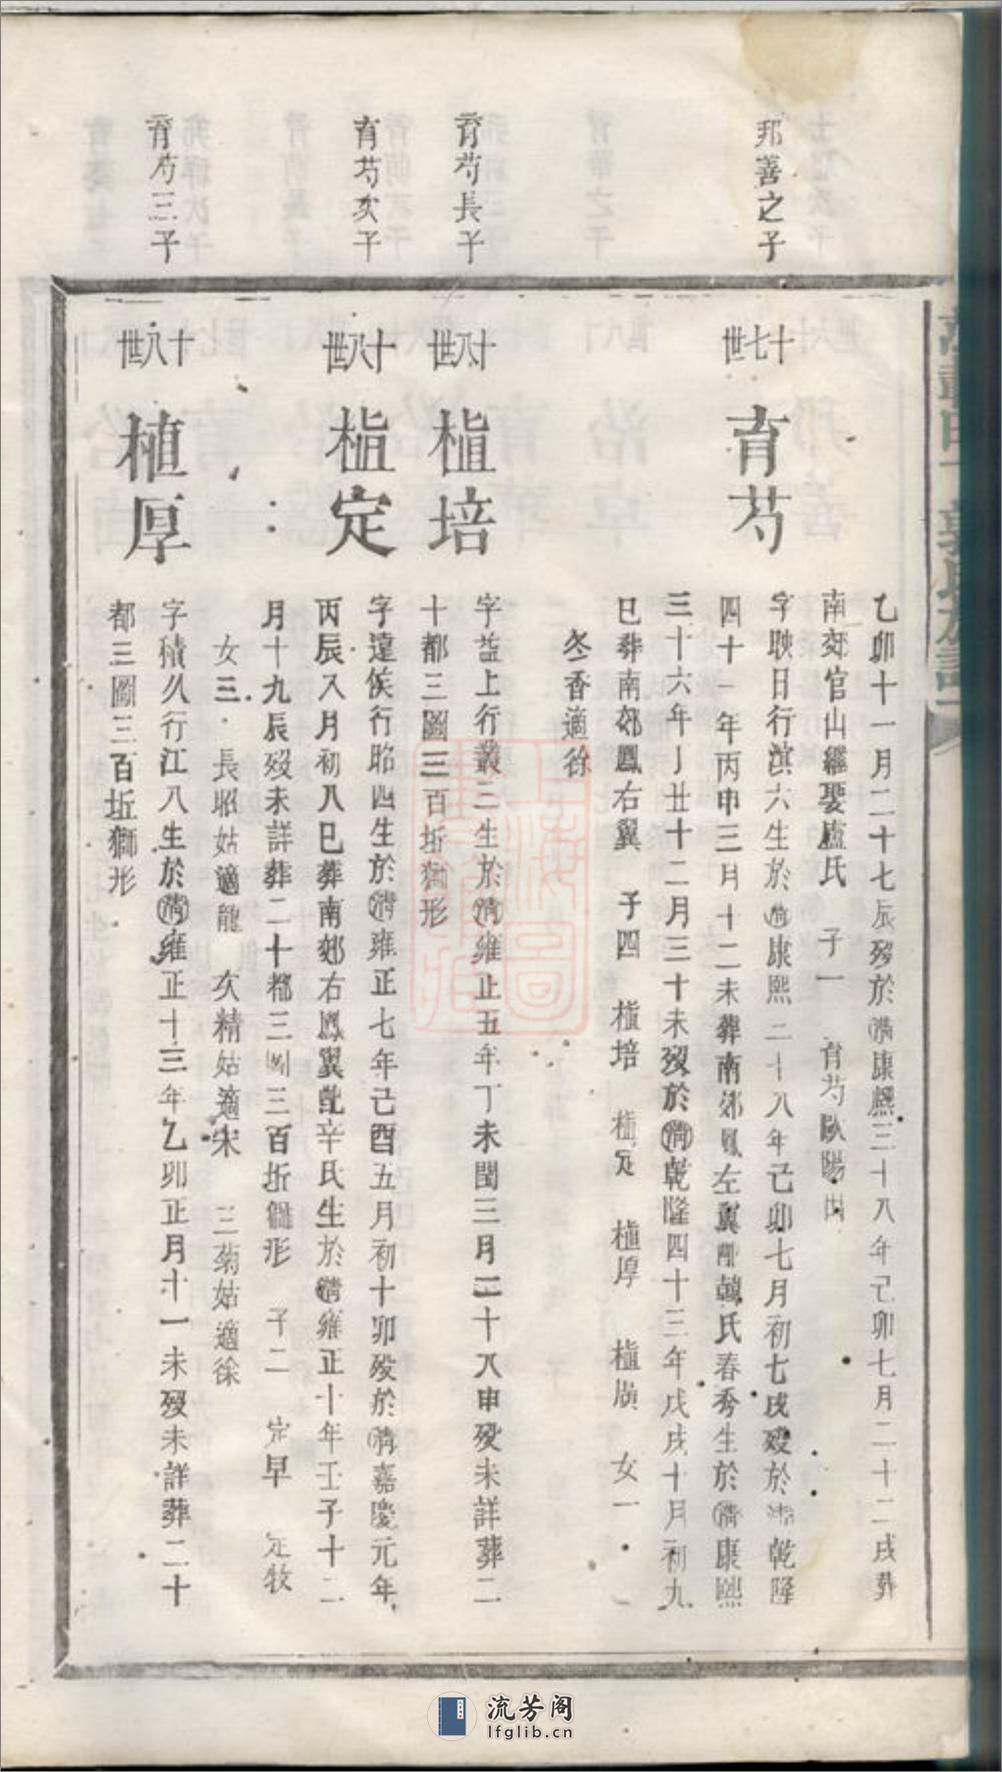 乙卯十一月二十七辰歿於清康熙三十八年己卯七月二十二戌葬
南郊官山繼娶盧氏 子一 育芍歐陽出
邦善之子
十七世
育芍
字映日行濱六生於清康熙二十八年己卯七月初七戌歿於清乾隆
四十一年丙申三月十二未葬南郊鳳左翼配韓氏春秀生於清康熙
三十六年丁丑十二月三十未歿於清乾隆四十三年戊戌十月初九
巳葬南郊鳳右翼 子四 植培 植定 植厚 植廣 女一
冬香適徐
育芍長子
十八世
植培
字益上行叢三生於清雍正五年丁未閏三月二十八申歿未詳葬二
十都三圖三百坵獅形
育芍次子
十八世
植定
字遠侯行昭四生於清雍正七年己酉五月初十卯歿於清嘉慶元年
丙辰八月初八巳葬南郊右鳳翼配辛氏生於清雍正十年壬子十二
月十九辰歿未詳葬二十都三圖三百坵獅形 子二 定早 定牧
女三 長昭姑適龍 次精姑適宋 三菊姑適徐
育芍三子
十八世
植厚
字積久行江八生於清雍正十三年乙卯正月十一未歿未詳葬二十
都三圖三百坵獅形
流芳阁
lfglib.cn